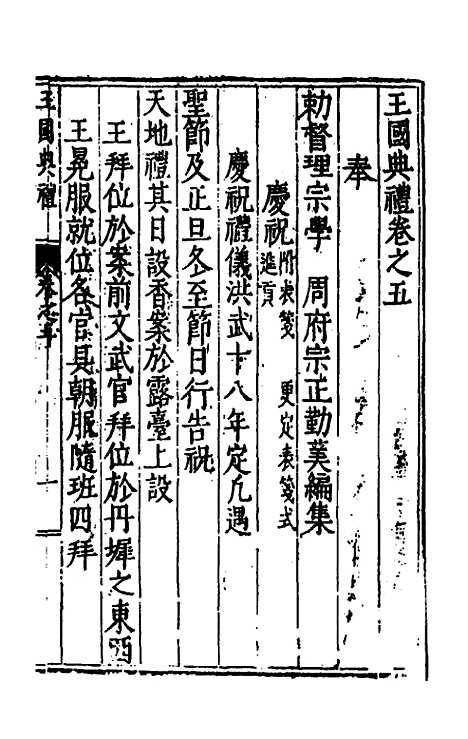 王國典禮卷之五
奉
勅督理宗學　周府宗正勤羙編集
慶祝 附表箋　更定表箋式
進貢
慶祝禮儀洪武十八年定凢遇
聖節及正旦冬至節日行告祝
天地禮其日設香案於露臺上設
王拜位於案前文武官拜位於丹墀之東西
王冕服就位各官具朝服隨班四拜
王國典禮　卷之五　一